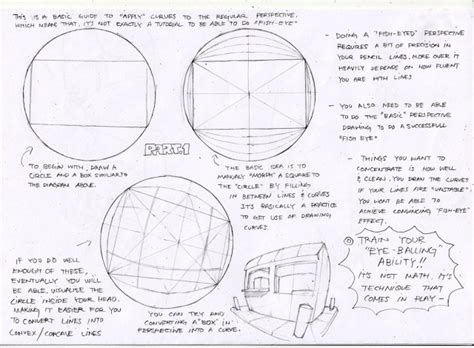 THIS IS A BASIC GUIDE TO "APPLY" CURVES TO THE REGULAR PERSPECTIVE.
WHICH MEAN THAT, IT'S NOT EXACTLY A TUTORIAL TO BE ABLE TO DO "FISH-EYE"
PART 1
TO BEGIN WITH, DRAW A
CIRCLE AND A BOX SIMILAR TO
THE DIAGRAM ABOVE.
THE BASIC IDEA IS TO
MANUALY "MORPH" A SQUARE TO
THE "CIRCLE" BY FILLING
IN BETWEEN LINES & CURVES
IT'S BASICALLY A PRACTICE
TO GET USE OF DRAWING
CURVES.
- DOING A "FISH-EYED" PERSPECTIVE
REQUIRES A BIT OF PRECISION IN
YOUR PENCIL LINES. MORE OVER IT
HEAVILY DEPENDS ON HOW FLUENT
YOU ARE WITH LINES
- YOU ALSO NEED TO BE ABLE
TO DO THE "BASIC" PERSPECTIVE
DRAWING TO DO A SUCCESSFULL
"FISH EYE"
- THINGS YOU WANT TO
CONCENTRATE IS HOW WELL
& CLEAN. YOU DRAW THE CURVES
IF YOUR LINES ARE "UNSTABLE".
YOU WONT BE ABLE TO
ACHIEVE CONVINCING "FISH-EYE"
EFFECT.
IF YOU DO WELL
ENOUGH OF THESE,
EVENTUALLY YOU WILL
BE ABLE, VISUALISE THE
CIRCLE INSIDE YOUR HEAD.
MAKING IT EASIER FOR YOU
TO CONVERT LINES INTO
CONVEX/CONCAVE LINES
YOU CAN TRY AND
CONVERTING A "BOX" IN
PERSPECTIVE INTO A CURVE.
TRAIN YOUR
"EYE-BALLING"
ABILITY!!
IT'S NOT MATH, IT'S
TECHNIQUE THAT
COMES IN PLAY -